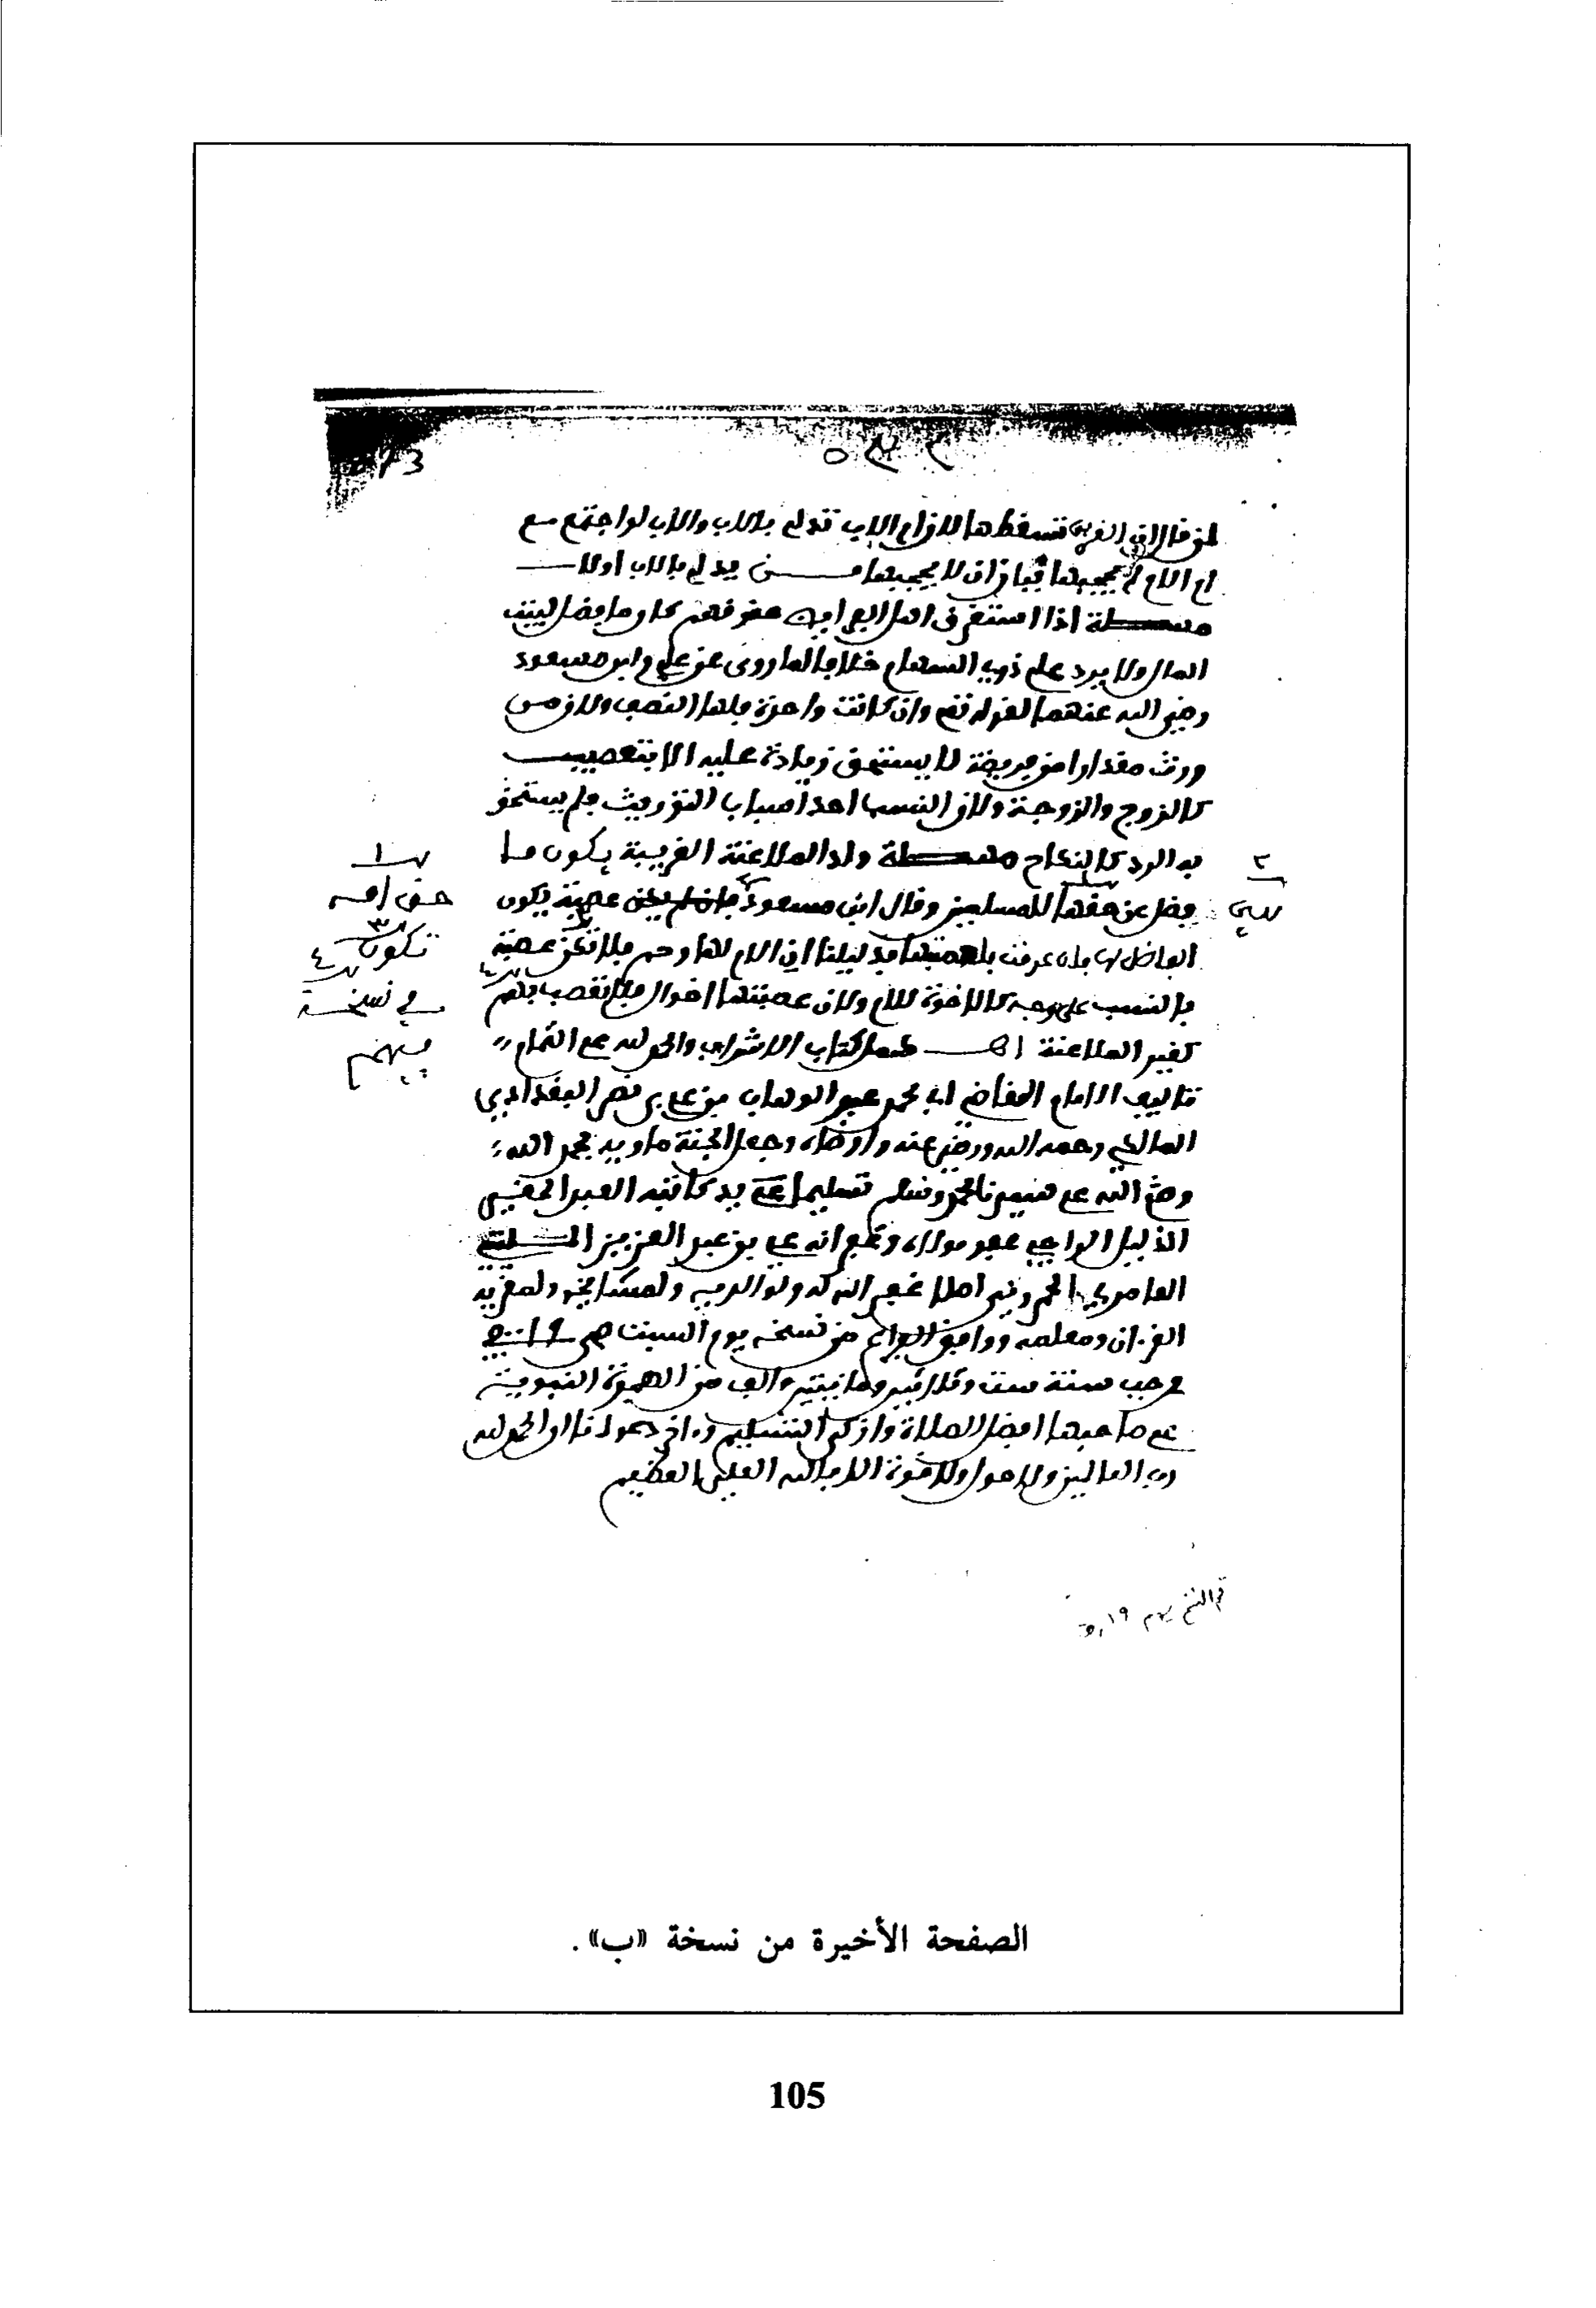 لمن قال ان القربى تسقطها لان ام الاب تدلي بالاب والاب لو اجتمع مع
ام الام لم يحجبها فبان ان لا يحجبها من يدلي بالاب اولا
مسئلة اذا استغرق اهل الفرايض حقوقهم كان ما فضل لبيت
المال ولا يرد على ذوي السهام خلافا لما روي عن علي وابن مسعود
رضي الله عنهما لقوله تعلى وان كانت واحدة فلها النصف ولان من
ورث مقدارا من فريضة لا يستحق زيادة عليه الا بتعصيب
كالزوج والزوجة ولان النسب احد اسباب التوريث فلم يستحق
به الرد كالنكاح مسئلة ولد الملاعنة الغريبة يكون ما
فضل عن حقها للمسلمين وقال ابن مسعود فان لم يكن عصبة يكون
الفاضل لها فان عرفت فلعصبتها فدليلنا ان الام لها رحم فلا تكن عصبة
بالنسب على وجه كالاخوة للام ولان عصبتها اخوال فلا تعصب بهم
كغير الملاعنة اهـ كمل كتاب الاشراف والحمد لله على التمام
تاليف الامام القاضي ابي محمد عبد الوهاب بن علي بن نصر البغدادي
المالكي رحمه الله ورضي عنه وارضاه وجعل الجنة ماويه بحمد الله
وصلى الله على سيدنا محمد وسلم تسليما على يد كاتبه العبد الحقير
الذليل الراجي عفو مولاه وغفرانه علي بن عبد العزيز
العامري اصلا غفر الله له ولوالديه ولمشايخه ولمقريه
القرءان ومعلمه ووافق الفراغ من نسخه يوم السبت 19
رجب سنة ست وثلاثين ومايتين والف من الهجرة النبوية
على صاحبها افضل الصلاة وازكى التسليم وءاخر دعوانا ان الحمد لله
رب العالمين ولا حول ولا قوة الا بالله العلي العظيم
تكون
في نسخة
تم النسخ يوم ١٩
الصفحة الأخيرة من نسخة «ب».
105